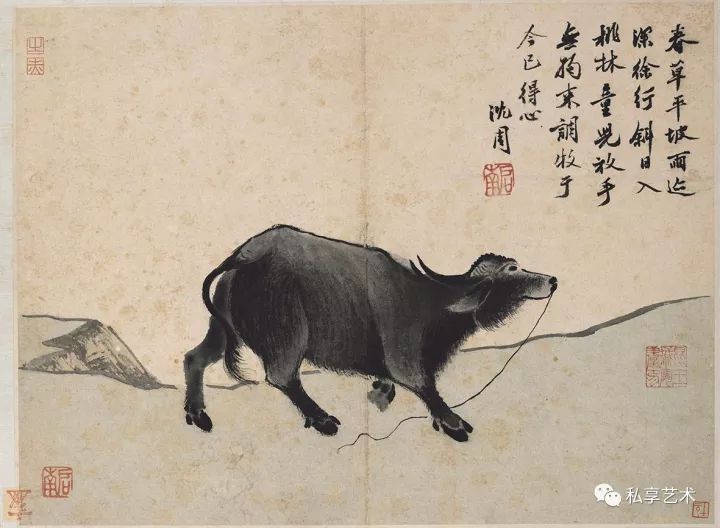 春草平坡雨迹
深徐行斜日入
桃林童児放手
無拘束調牧于
今已得心
沈周
启南
启南
私享艺术